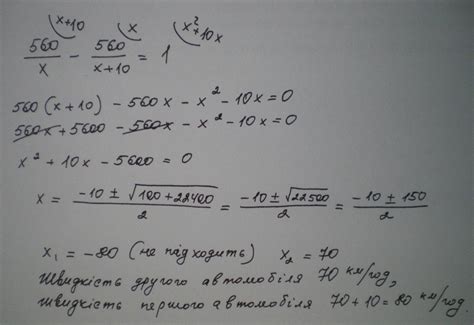 560/x (x+10 - 560/(x+10) (x = 1 (x²+10x
560(x+10) - 560x - x² - 10x = 0
560x + 5600 - 560x - x² - 10x = 0
x² + 10x - 5600 = 0
x = (-10 ± √(100+22400))/2 = (-10 ± √22500)/2 = (-10 ± 150)/2
x₁ = -80 (не підходить) x₂ = 70
Швидкість другого автомобіля 70 км/год,
швидкість першого автомобіля 70 + 10 = 80 км/год.